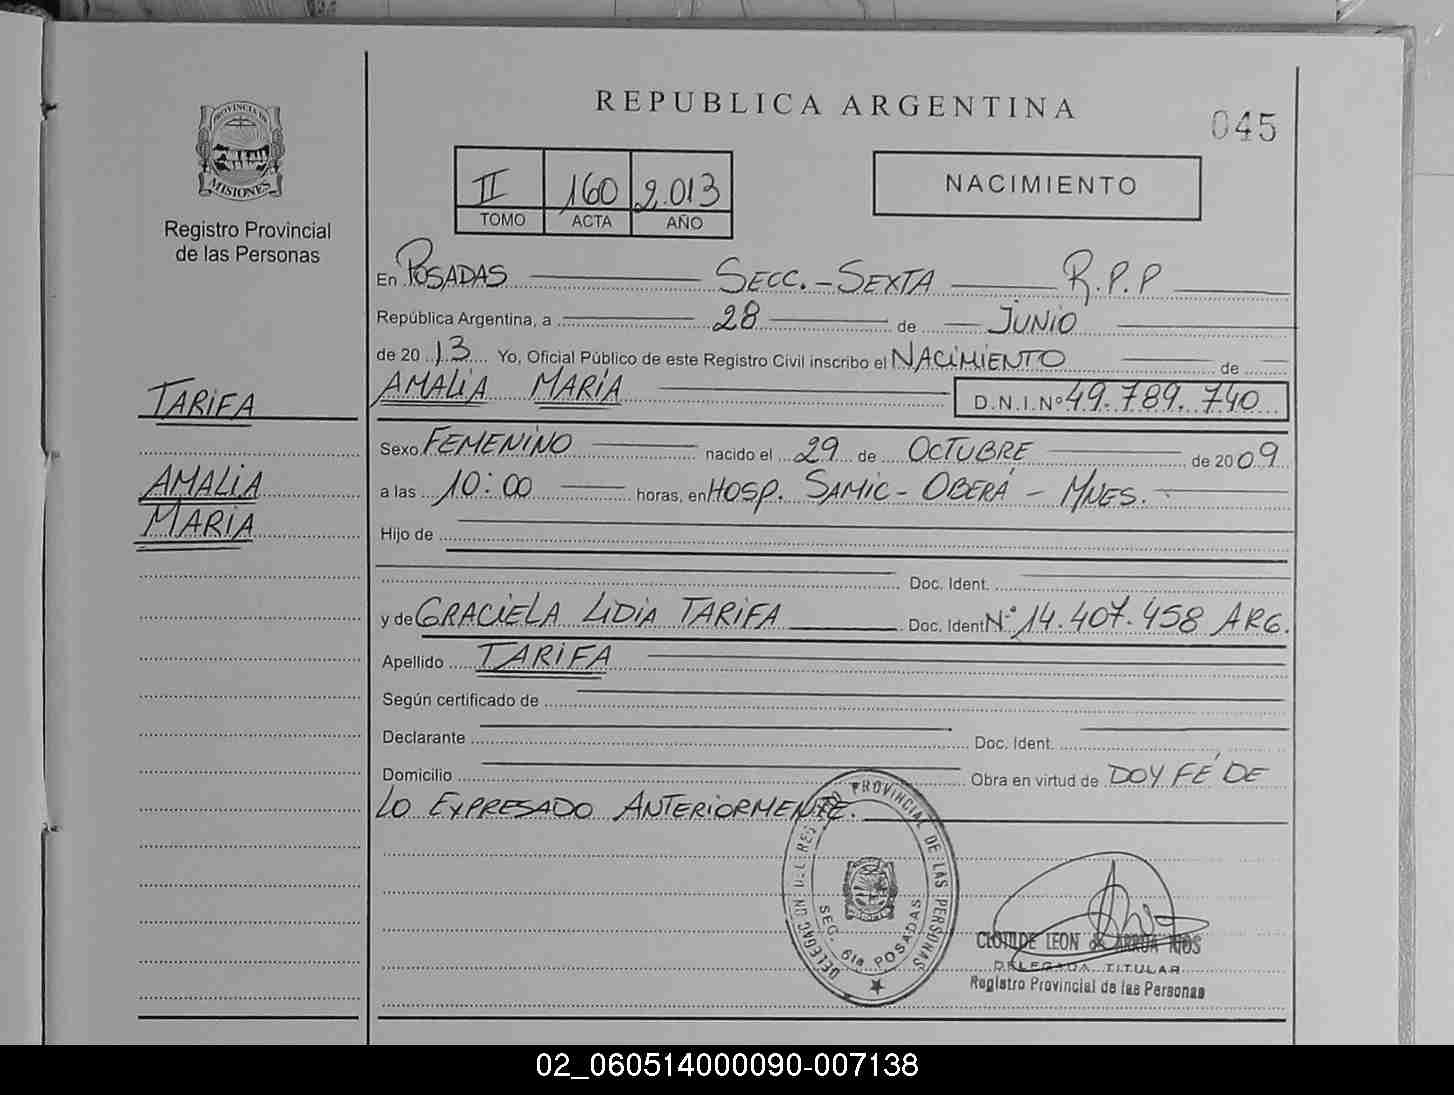 REPUBLICA ARGENTINA
045
PROVINCIA DE
MISIONES
Registro Provincial
de las Personas
II 160 2.013
TOMO ACTA AÑO
NACIMIENTO
En POSADAS SECC.-SEXTA R.P.P
República Argentina, a 28 de JUNIO
de 20 13 Yo, Oficial Público de este Registro Civil inscribo el NACIMIENTO de
AMALIA MARÍA D.N.I.Nº 49.789.740
TARIFA
AMALIA
MARIA
Sexo FEMENINO nacido el 29 de OCTUBRE de 20 09
a las 10:00 horas, en HOSP. SAMIC - OBERÁ - MNES.
Hijo de
Doc. Ident.
y de GRACIELA LIDIA TARIFA Doc. Ident Nº 14.407.458 ARG.
Apellido TARIFA
Según certificado de
Declarante Doc. Ident.
Domicilio Obra en virtud de DOY FÉ DE
LO EXPRESADO ANTERIORMENTE.
PROVINCIAL DE LAS PERSONAS
SEC. 6ta POSADAS
CLOTILDE LEON de ARRUA RIOS
DELEGADA TITULAR
Registro Provincial de las Personas
02_060514000090-007138